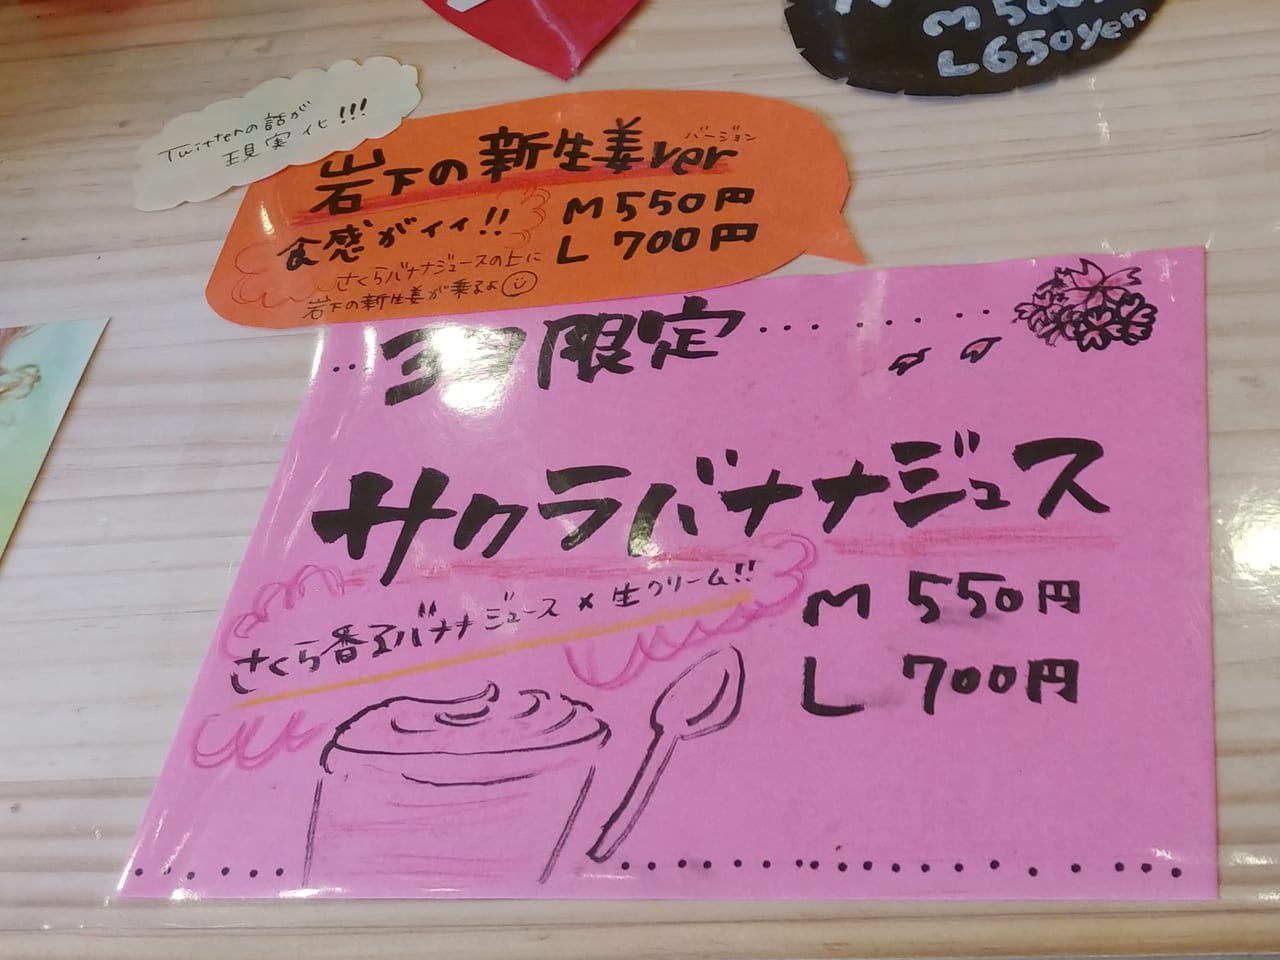 M 500
L 650yen
Twitterの話が
現実化!!!
岩下の新生姜ver
バージョン
食感がイイ!!
M 550円
L 700円
さくらバナナジュースの上に
岩下の新生姜が乗るよ
限定
サクラバナナジュース
さくら香るバナナジュース×生クリーム!!
M 550円
L 700円